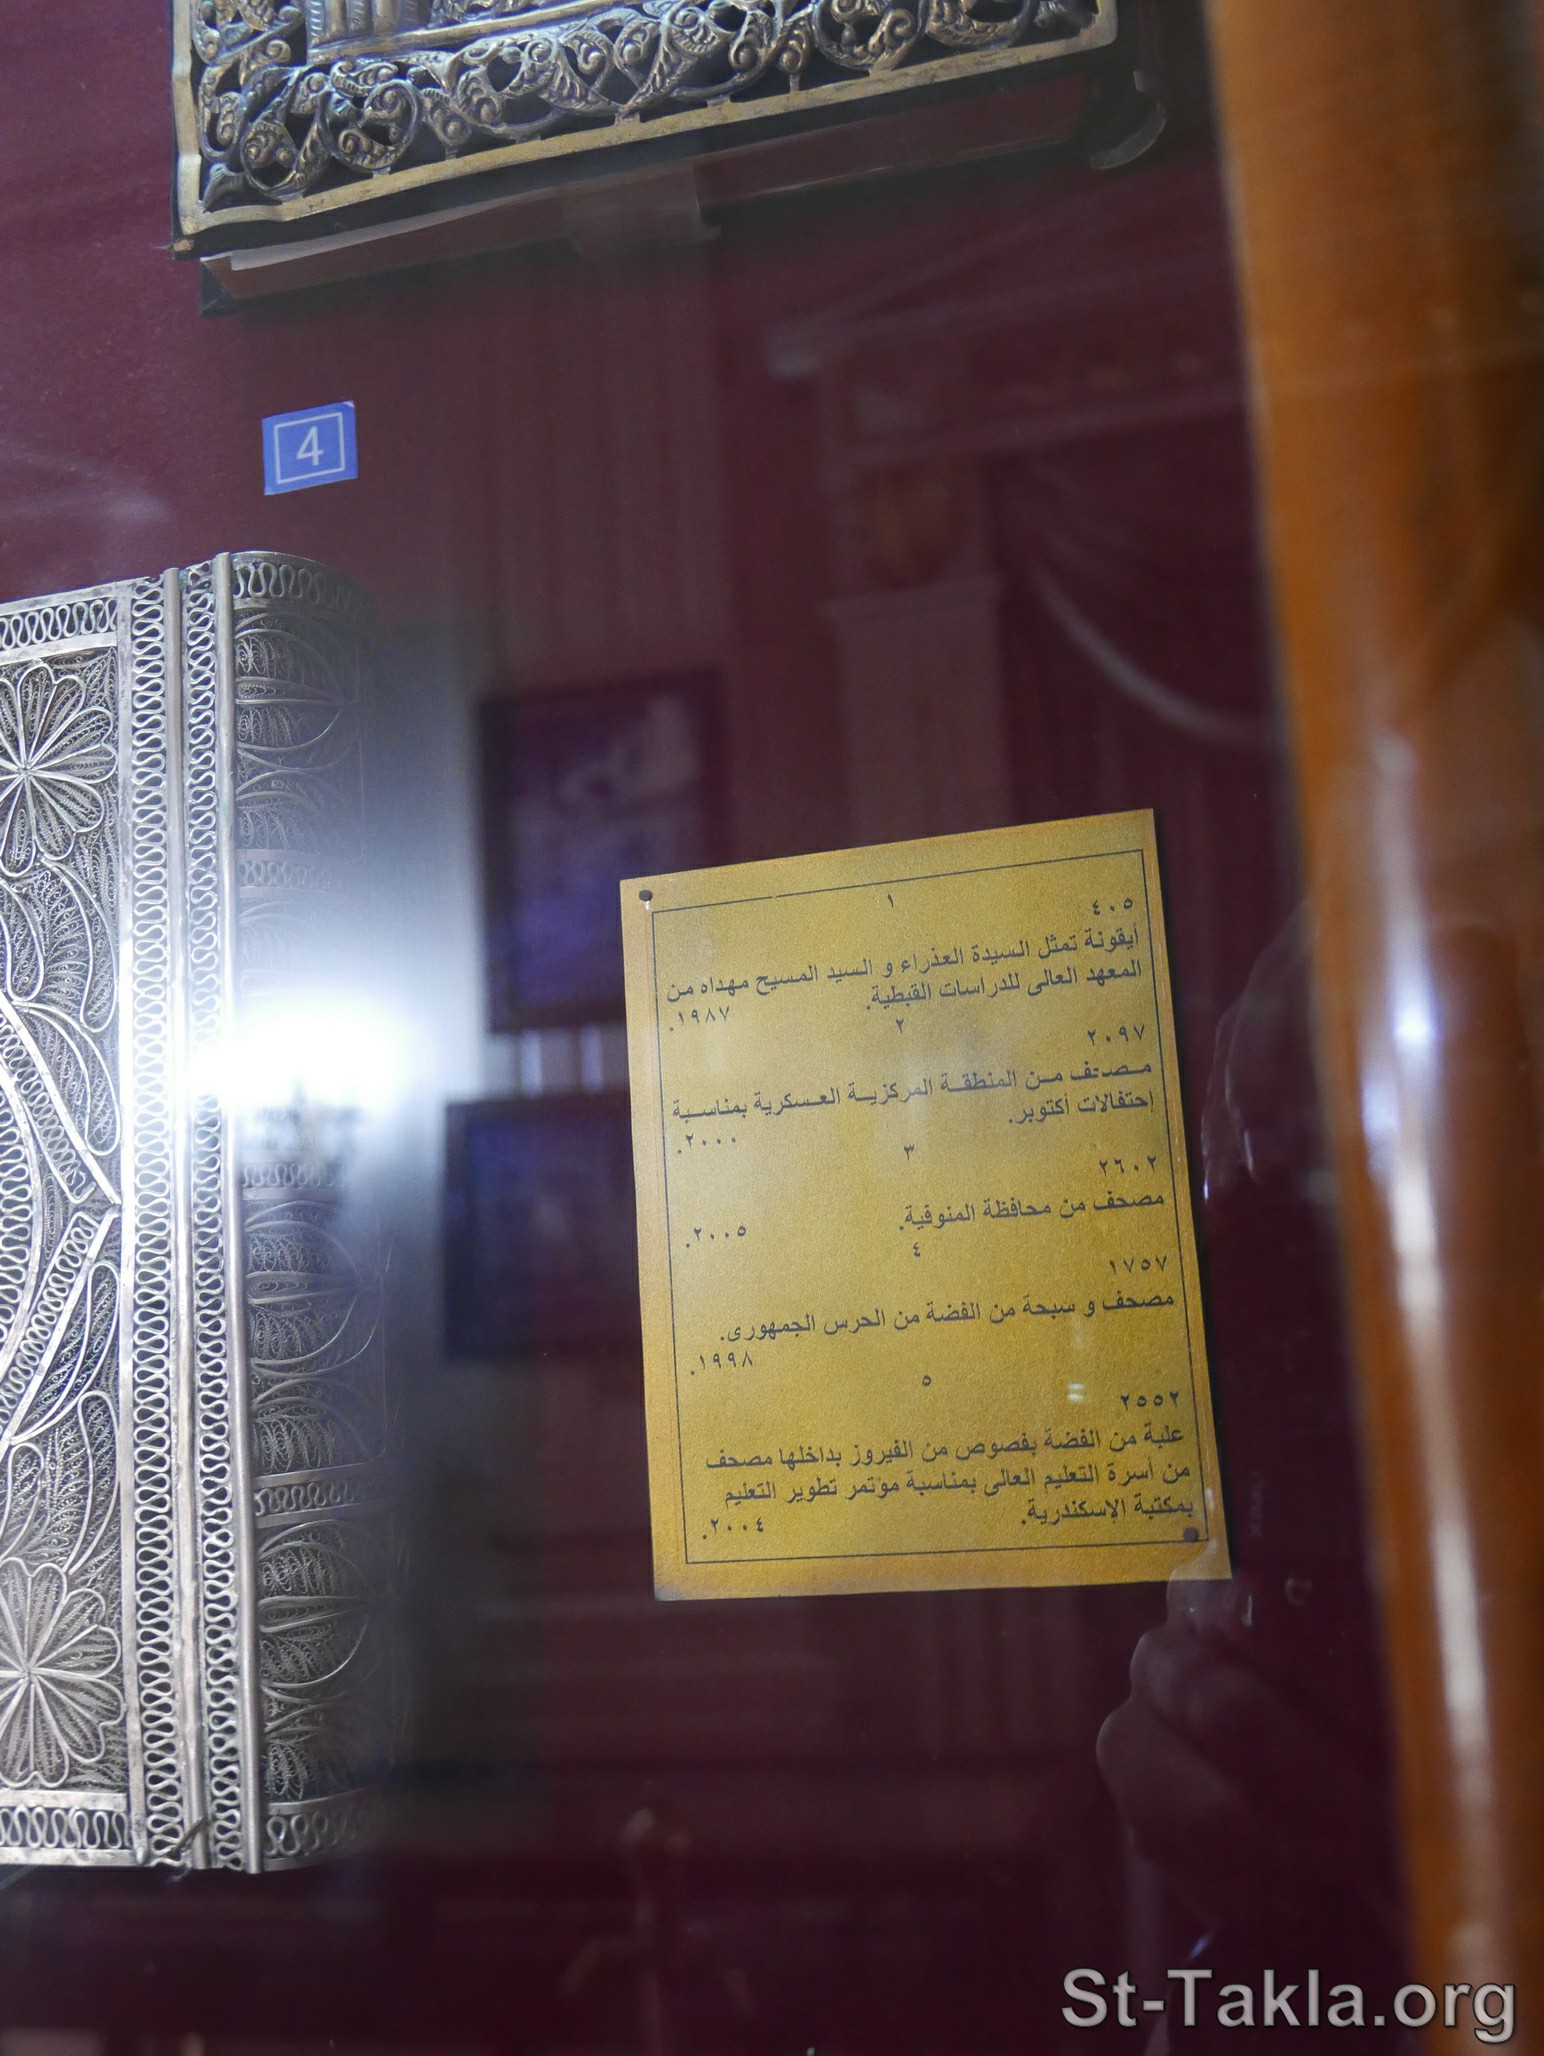 4
٤٠٥ ١
أيقونة تمثل السيدة العذراء و السيد المسيح مهداه من
المعهد العالى للدراسات القبطية.
١٩٨٧.
٢٠٩٧ ٢
مصحف من المنطقة المركزية العسكرية بمناسبة
إحتفالات أكتوبر.
٢٠٠٠.
٢٦٠٢ ٣
مصحف من محافظة المنوفية.
٢٠٠٥.
١٧٥٧ ٤
مصحف و سبحة من الفضة من الحرس الجمهورى.
١٩٩٨.
٢٥٥٢ ٥
علبة من الفضة بفصوص من الفيروز بداخلها مصحف
من أسرة التعليم العالى بمناسبة مؤتمر تطوير التعليم
بمكتبة الإسكندرية.
٢٠٠٤.
St-Takla.org